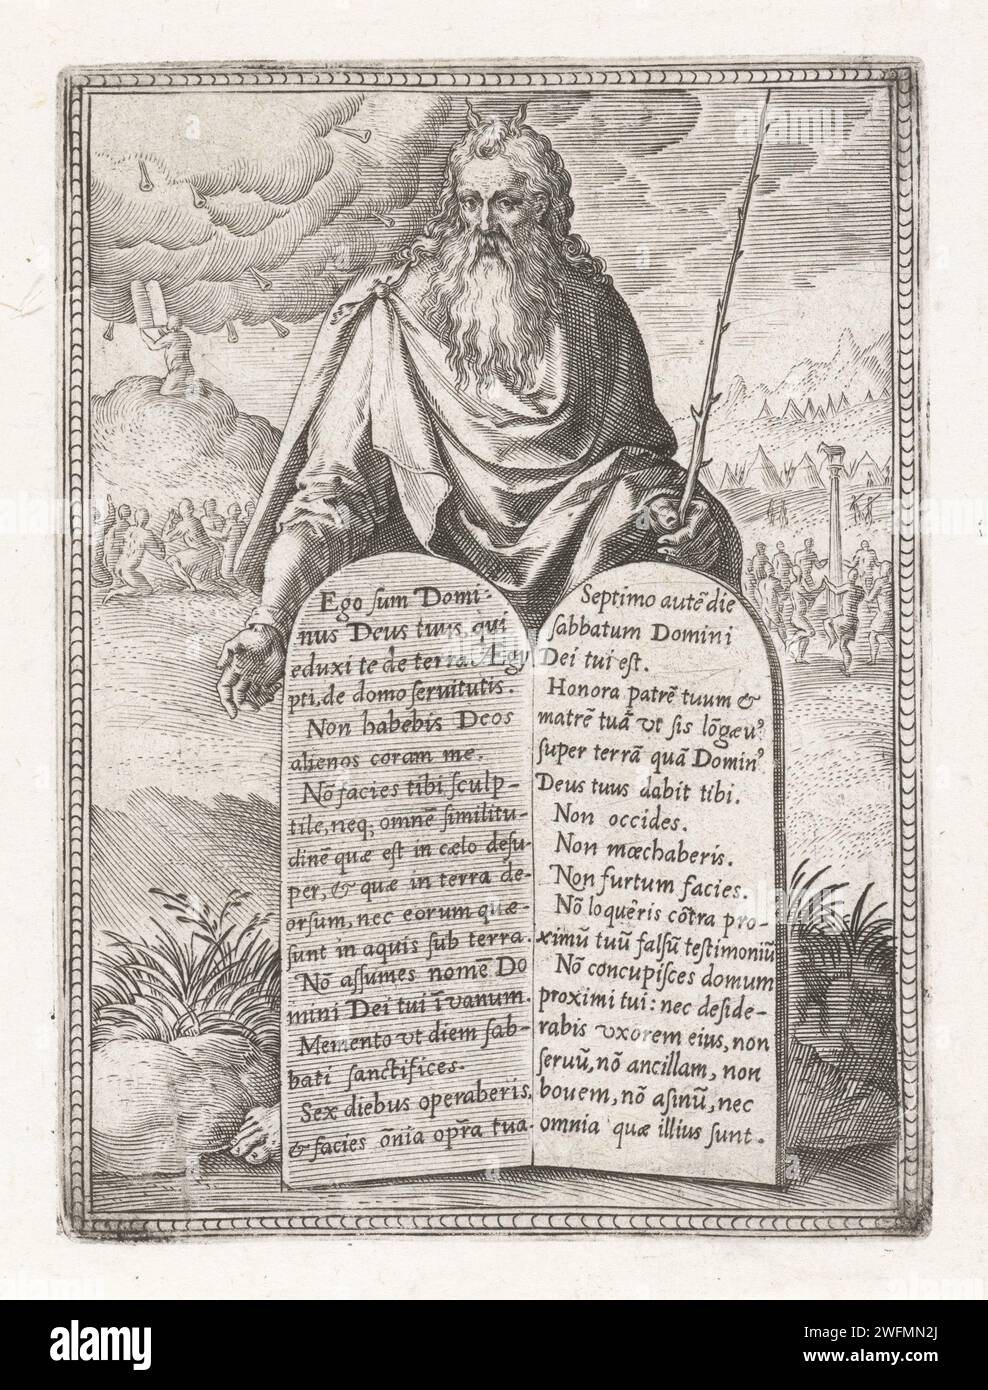 Ego sum Domi-
nus Deus tuus, qui
eduxi te de terra Ægy
pti, de domo seruitutis.
Non habebis Deos
alienos coram me.
Nō facies tibi sculp-
tile, neq, omnē similitu-
dinē quæ est in cælo desu-
per, & quæ in terra de-
orsum, nec eorum quæ
sunt in aquis sub terra.
Nō assumes nomē Do
mini Dei tui ī vanum.
Memento vt diem sab-
bati sanctifices.
Sex diebus operaberis,
& facies ōnia opṝa tua
Septimo autē die
sabbatum Domini
Dei tui est.
Honora patrē tuum &
matrē tuā vt sis lōgæu⁹
super terrā quā Domin⁹
Deus tuus dabit tibi.
Non occides.
Non mœchaberis.
Non furtum facies.
Nō loquēris cōtra pro-
ximū tuū falsū testimoniū
Nō concupisces domum
proximi tui: nec deside-
rabis vxorem eius, non
seruū, nō ancillam, non
bouem, nō asinū, nec
omnia quæ illius sunt.
alamy
Image ID: 2WFMN2J
www.alamy.com